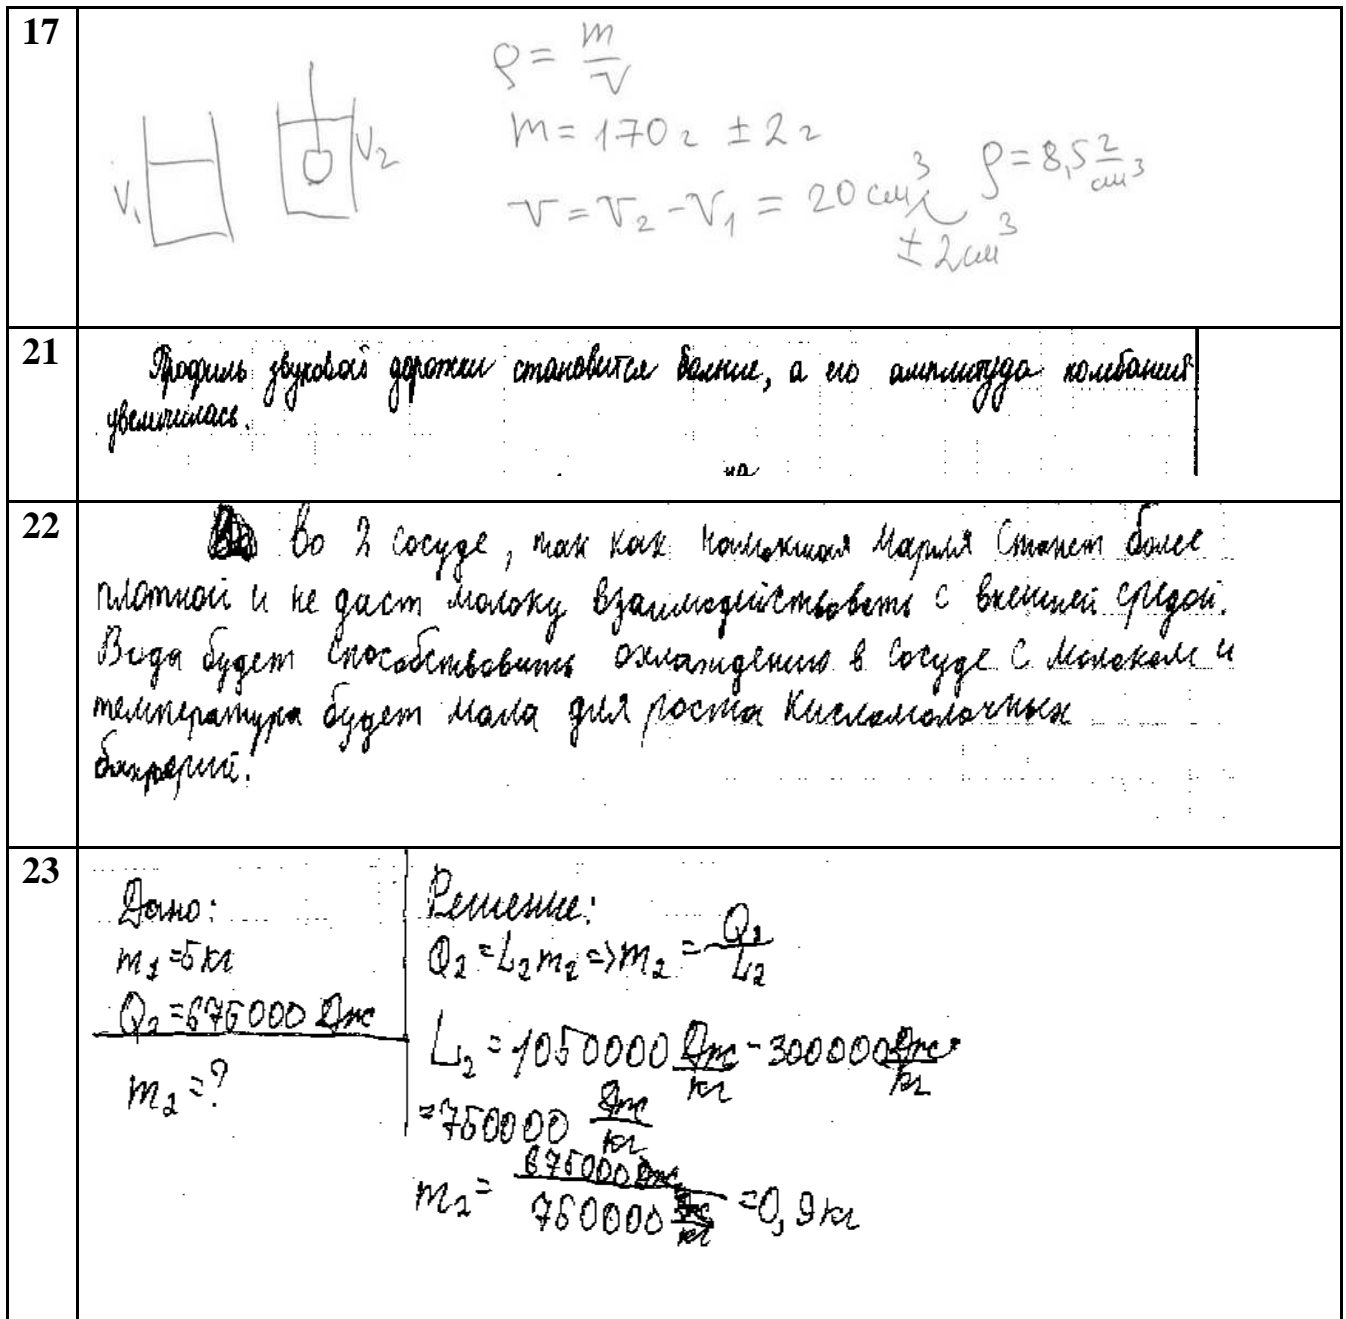 17
ρ = m/V
m = 170 г ± 2 г
V = V₂ - V₁ = 20 см³ ± 2 см³
ρ = 8,5 г/см³
V₁
V₂
21
Профиль звуковой дорожки становится более, а его амплитуда колебаний
увеличилась.
на
22
Во 2 сосуде, так как намокшая марля станет более
плотной и не даст молоку взаимодействовать с внешней средой.
Вода будет способствовать охлаждению в сосуде с молоком и
температура будет мала для роста кисломолочных
бактерий.
23
Дано:
m₁ = 5 кг
Q₂ = 675000 Дж
m₂ = ?
Решение:
Q₂ = L₂m₂ => m₂ = Q₂/L₂
L₂ = 1050000 Дж/кг - 300000 Дж/кг =
= 750000 Дж/кг
m₂ = 675000 Дж / 750000 Дж/кг = 0,9 кг